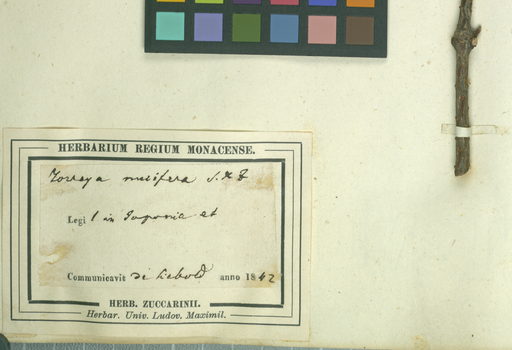 HERBARIUM REGIUM MONACENSE.
Torreya nucifera S. & Z
Legit in Japonia et
Communicavit de Siebold anno 1842
HERB. ZUCCARINII.
Herbar. Univ. Ludov. Maximil.